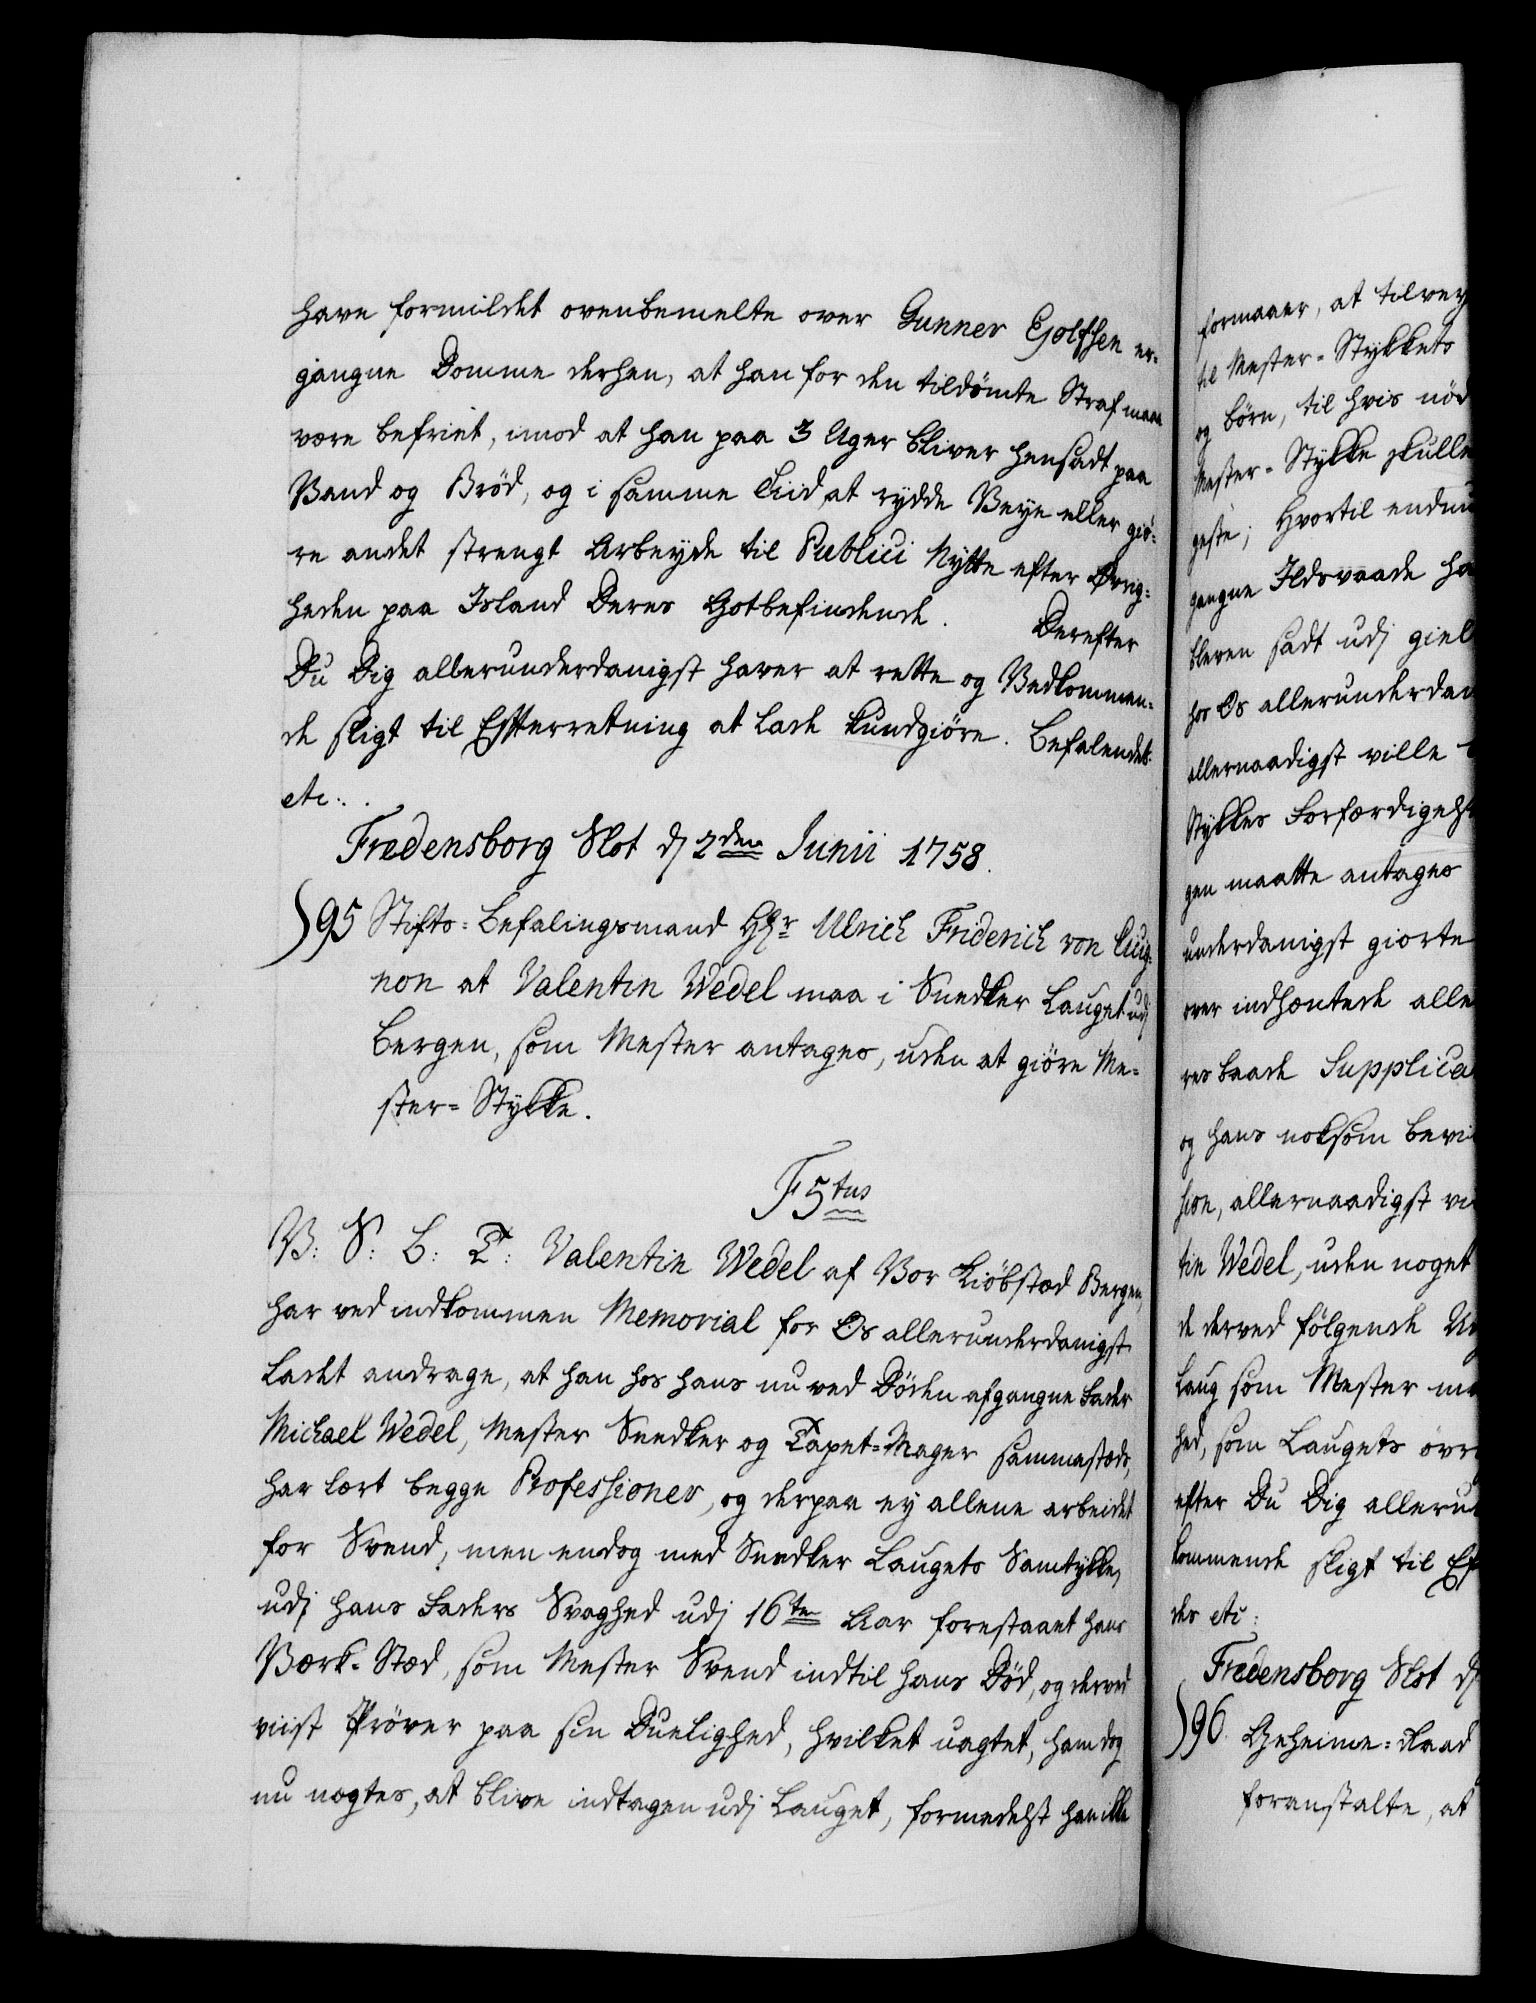 have formildet ovenbemelte over Gunner Ejolfsen er-
gangne Domme derhen, at han for den tildömte Straf maa
være befriet, imod at han paa 3 Uger bliver hensadt paa
Vand og Bröd, og i samme Tiid, at rydde Veye eller giö-
re andet strengt Arbeyde til Publici Nytte efter Övrig-
heden paa Island Deres Gotbefindende. Derefter
Du Dig allerunderdanigst haver at rette og Vedkommen-
de sligt til Efterretning at lade kundgiöre. Befalendes
etc:.
Fredensborg Slot dj 2den Junii 1758.
)95 Stifts-Befalingsmand Hr Ulrich Friderich von Cicig-
non at Valentin Wedel maa i Snedker Lauget udj
Bergen, som Mester antages, uden at giöre Me-
ster-Stykke.
F 5tus
V: S: B: T: Valentin Wedel af Vor Kiöbstæd Bergen,
har ved indkommen Memorial for Os allerunderdanigst
ladet andrage, at han hos hans nu ved Döden afgangne Fader
Michael Wedel, Mester Snedker og Tapet-Mager sammestæds,
har lært begge Professioner, og derpaa ey allene arbeidet
for Svend, men endog med Snedker Laugets Samtykke,
udj hans Faders Svaghed udj 16ten Aar forestaaet hans
Værk-Stæd, som Mester Svend indtil hans Död, og derved
viist Pröver paa sin Duelighed, hvilket uagtet, ham dog
nu nægtes, at blive indtagen udj Lauget, formedelst han ikke
formaaer, at tilvey
til Mester-Stykkets
og börn, til hvis nöd
Mester-Stykke skulle
geste; Hvortil endnu
gangne Ildsvaade ha
bleven sadt udj giel
hos Os allerunderdan
allernaadigst ville
Stykkes Forfærdigels
gen maatte antages
underdanigst giorte
over indhæntede alle
res baade Supplica
og hans noksom bevi
sion, allernaadigst vi
tin Wedel, uden noget
de derved fölgende
Laug som Mester ma
hed, som Laugets övr
efter Du Dig alleru
kommende sligt til Ef
des etc:
Fredensborg Slot dj
)96. Geheime-Raad
foranstalte, at